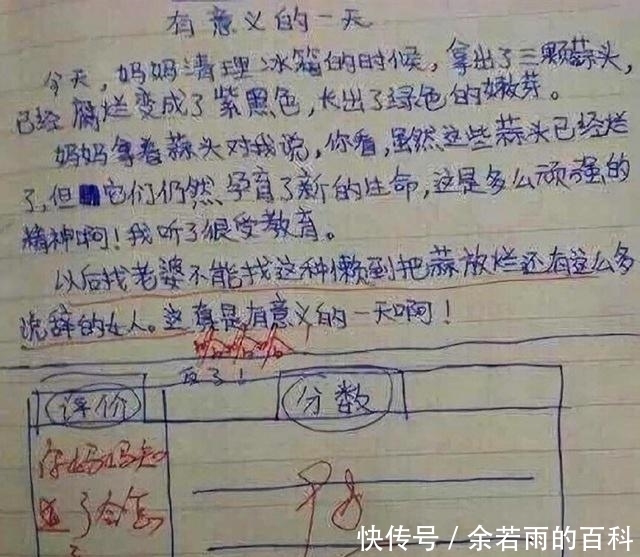 有意义的一天
今天，妈妈清理冰箱的时候，拿出了三颗蒜头，
已经腐烂变成了紫黑色，长出了绿色的嫩芽。
妈妈拿着蒜头对我说，你看，虽然这些蒜头已经烂
了，但它们仍然孕育了新的生命，这是多么顽强的
精神啊！我听了很受教育。
以后找老婆不能找这种懒到把蒜放烂还有这么多
说辞的女人。这真是有意义的一天啊！
哈哈哈
评价
分数
你妈妈知
道了会怎
快传号 / 余若雨的百科